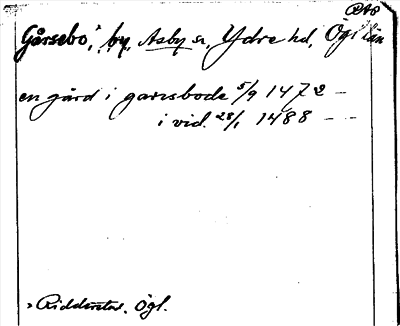 Gårsebo, by, Asby sn, Ydre hd, Ögl län
en gård i garsbode 5/9 1472 –
i vid. 28/1 1488 – –
Ridderstad, Ögl.